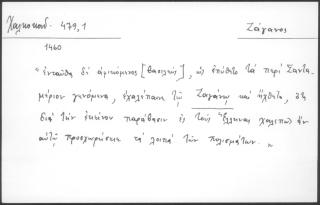 Χαλκοκονδ. 479,1
Ζάγανος
1460
"ἐνταῦθα δὲ ἀφικόμενος [βασιλεύς], ὡς ἐπύθετο τὰ περὶ Σαντα-
μέριον γενόμενα, ἐχαλέπαινε τῷ Ζαγάνῳ καὶ ἤχθετο, ὅτι
διὰ τὴν ἐκείνου παράβασιν ἐς τοὺς Ἕλληνας χαλεπῶς ἂν
αὐτῷ προσχωρήσειε τὰ λοιπὰ τῶν πολισμάτων."